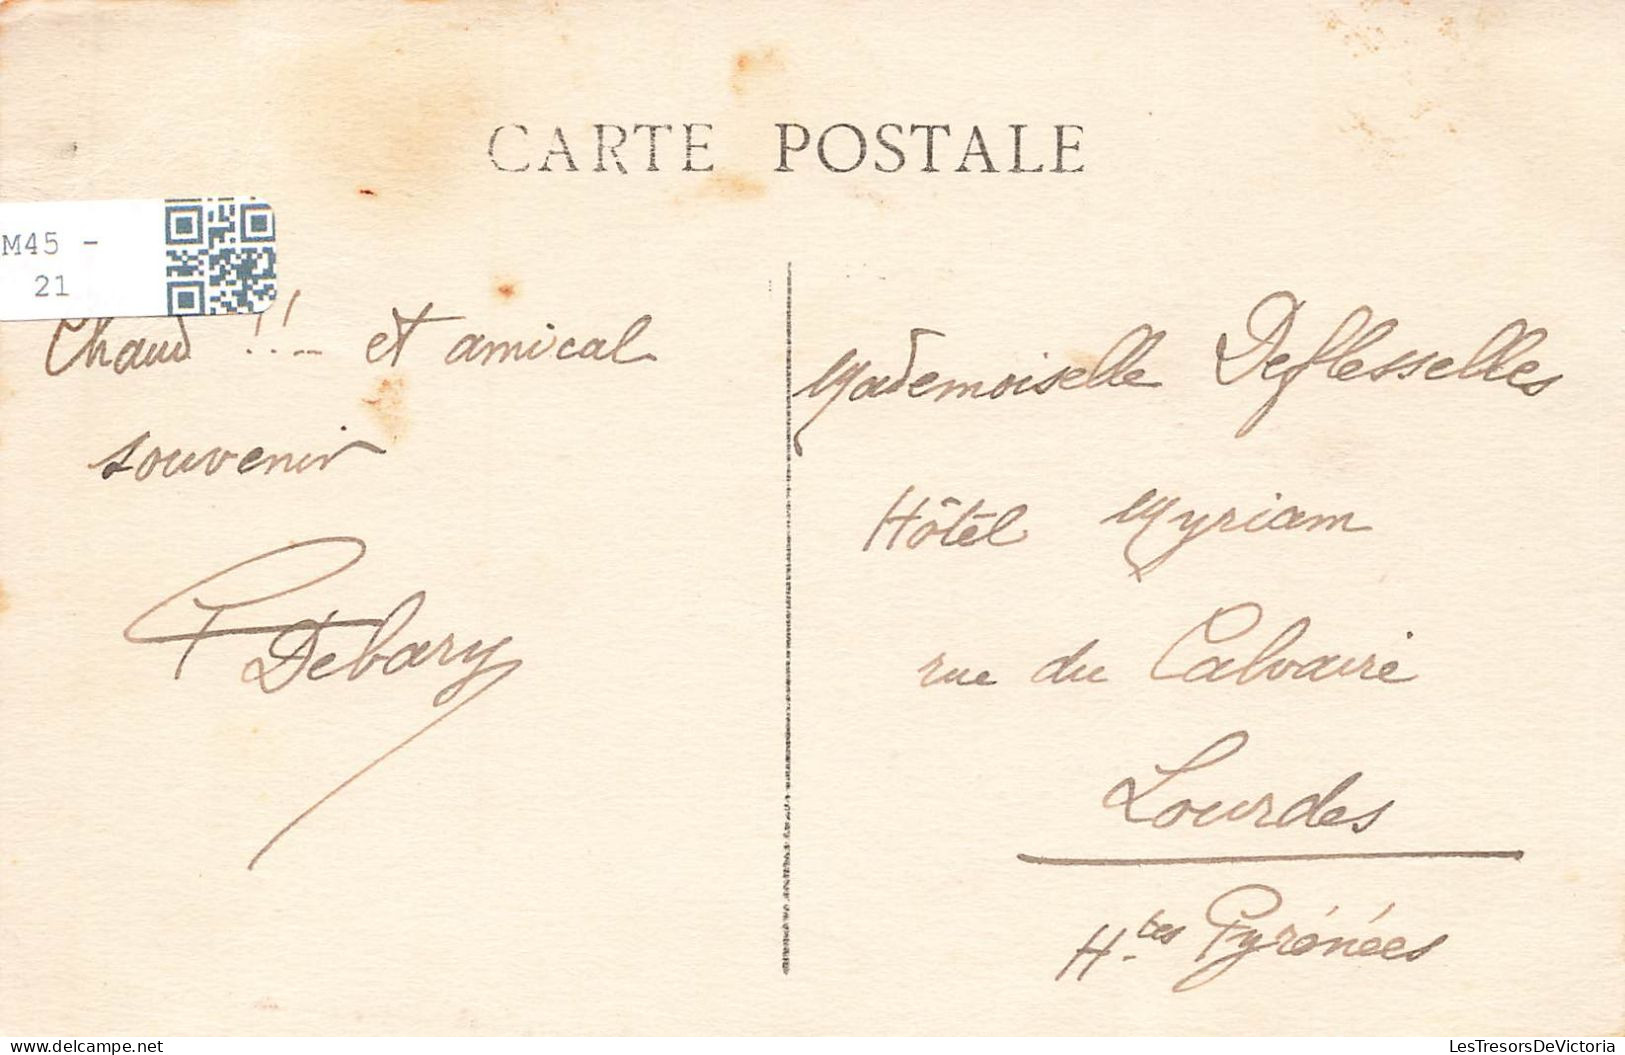 CARTE POSTALE
M45 -
21
Chaud !!... et amical
souvenir
P Debary
Mademoiselle Deflesselles
Hôtel Myriam
rue du Calvaire
Lourdes
H-tes Pyrénées
LesTresorsDeVictoria